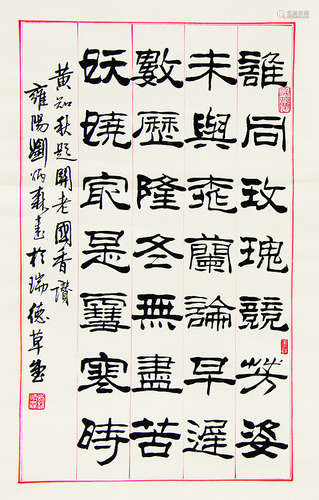 誰同玫瑰競芳姿
未與蘭論早遲
數歷隆冬無盡苦
妖嬈冣是寒時
黃知秋題開老國香讚
雍陽劉炳森書於瑞德草堂